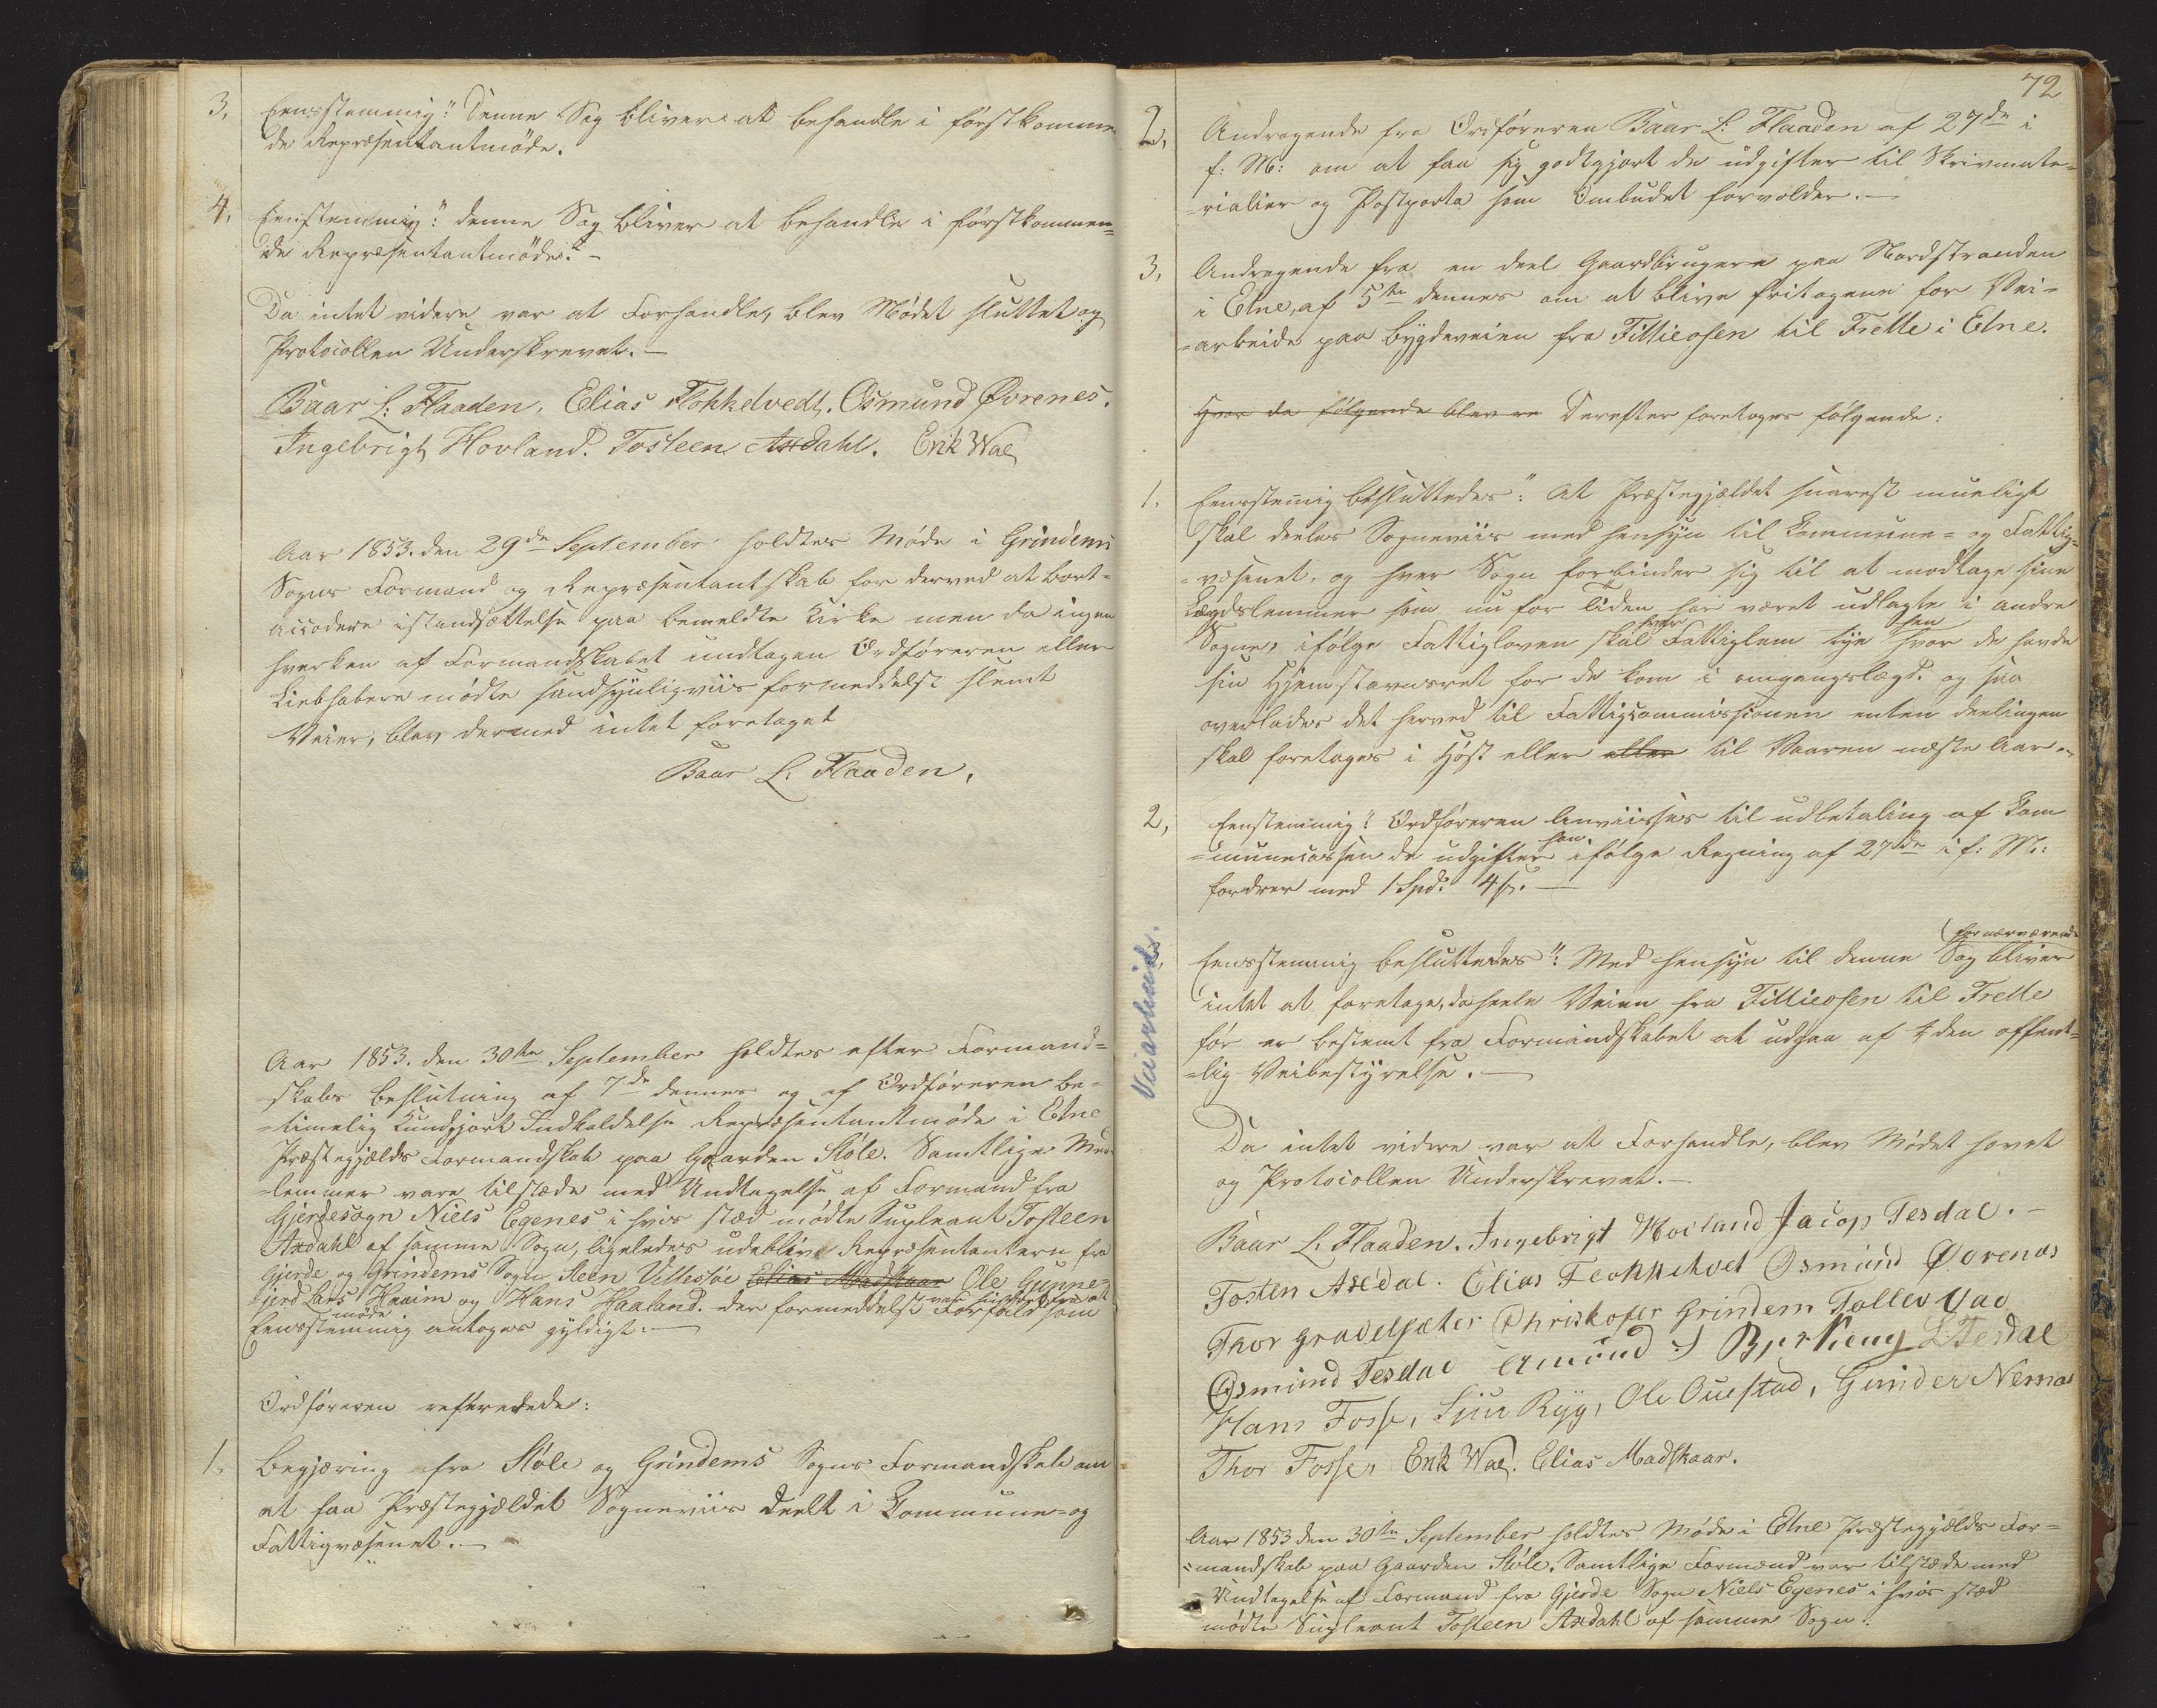 3, Eensstemmig": Denne Sag bliver at behandle i førstkommen
de Repræsentantmøde.
4, Eenstemmig": denne Sag bliver at behandle i førstkommen=
de Repræsentantmøde". –
Da intet videre var at Forhandle, blev Mødet sluttet og
Protocollen Underskrevet. –
Baar L: Flaaden. Elias Flokketvedt. Osmund Øvrenes.
Ingebrigt Hovland. Tosteen Axdahl. Erik Wae
Aar 1853. den 29de September holdtes Møde i Grindems
Sogns Formand og Repræsentantskab for derved at bort=
accodere istandsættelse paa bemeldte Kirke men da ingen
hverken af Formandskabet undtagen Ordføreren eller
Liebhabere mødte sandsynligviis formeddelst slemt
Veier, blev dermed intet foretaget
Baar L. Flaaden.
Aar 1853. den 30te September holdtes efter Formand=
=skabs beslutning af 7de dennes og af Ordføreren be=
=timelig Kundgjort Indkaldelse Repræsentantmøde i Etne
Præstegjælds Formandskab paa Gaarden Støle. Samtlige Med=
=lemmer vare tilstæde med Undtagelse af Formand fra
Gjerdesogn Niels Egenes i hvis stæd mødte Supleant Tosteen
Axdahl af samme Sogn, ligeledes udebliv Repræsentantern fra
Gjerde og Grindems Sogn Steen Vittessøe Elias Madskaar Ole Gunne=
=gjerd Lars Haaim og Hans Haaland. der formeddelst Forfald som
møde
Eensstemmig antoges gyldigt. –
Ordføreren refererede:
1. Begjæring fra Støle og Grindems Sogns Formandskab om
at faa Præstegjældet Sogneviis deelt i Commune= og
Fattigvæsenet. –
72
2, Andragende fra Ordføreren Baar L: Flaaden af 27de i
f: M: om at faa sig godtgjort de udgifter til Skrivmate=
=rialier og Postporto som Ombudet forvolder. –
3, Andragende fra en deel Gaardbrugere paa Nordstranden
i Etne, af 5te dennes om at blive fritagene for Vei=
=arbeide paa bygdeveien fra Fittieosen til Frette i Etne.
Hvor da følgende blev re Derefter foretoges følgende:
1. Eensstemig besluttedes": At Præstegjældet snarest mueligt
skal deeles Sogneviis med hensyn til Commune= og Fattig=
=væsenet, og hver Sogn forbinder sig til at modtage sine
Lægdslemmer som nu for tiden har været udlagte i andre
Sogne, ifølge Fattigloven skal hver Fattiglem tye hen hvor de havde
sin Hjemstavnsret for de kom i omgangslægd. og saa
overlades det herved til Fattigcommissionen enten deelingen
skal foretages i Høst eller eller til Vaaren næste Aar. –
2, Eenstemmig": Ordføreren Anviisses til udbetaling af Com
=munecassen de udgifter han ifølge Regning af 27de i f: M:
fordrer med 1 Spd. 4 s. –
Veiarbeide.
(for nærværende
Eensstemmig besluttedes": Med hensyn til denne Sag bliver
intet at foretage, da heele Veien fra Fittieosen til Frette
før er bestemt fra Formandskabet at udgaa af den offent=
=lig Veibestyrelse. –
Da intet videre var at Forhandle, blev Mødet hævet
og Protocollen Underskrevet. –
Baar L. Flaaden. Ingebrigt Hovland Jacop Tesdal. –
Tosten Axedal. Elias Flokketvet Osmund Øvrenæs
Thor Gravelsæter Christofer Grindem Tollev Vae
Osmund Tesdal Amund J Bjerkeng L Tesdal
Hans Fosse, Sjur Ryg, Ole Ouestad, Gunder Nernæs
Thor Fosse, Erik Wae. Elias Madskaar.
Aar 1853 den 30te September holdtes Møde i Etne Præstegjælds For=
=mandskab paa Gaarden Støle. Samtlige Formænd var tilstæde med
Undtagelse af Formand fra Gjerde Sogn Niels Egenes i hvis stæd
mødte Supleant Tosteen Axdahl af samme Sogn.